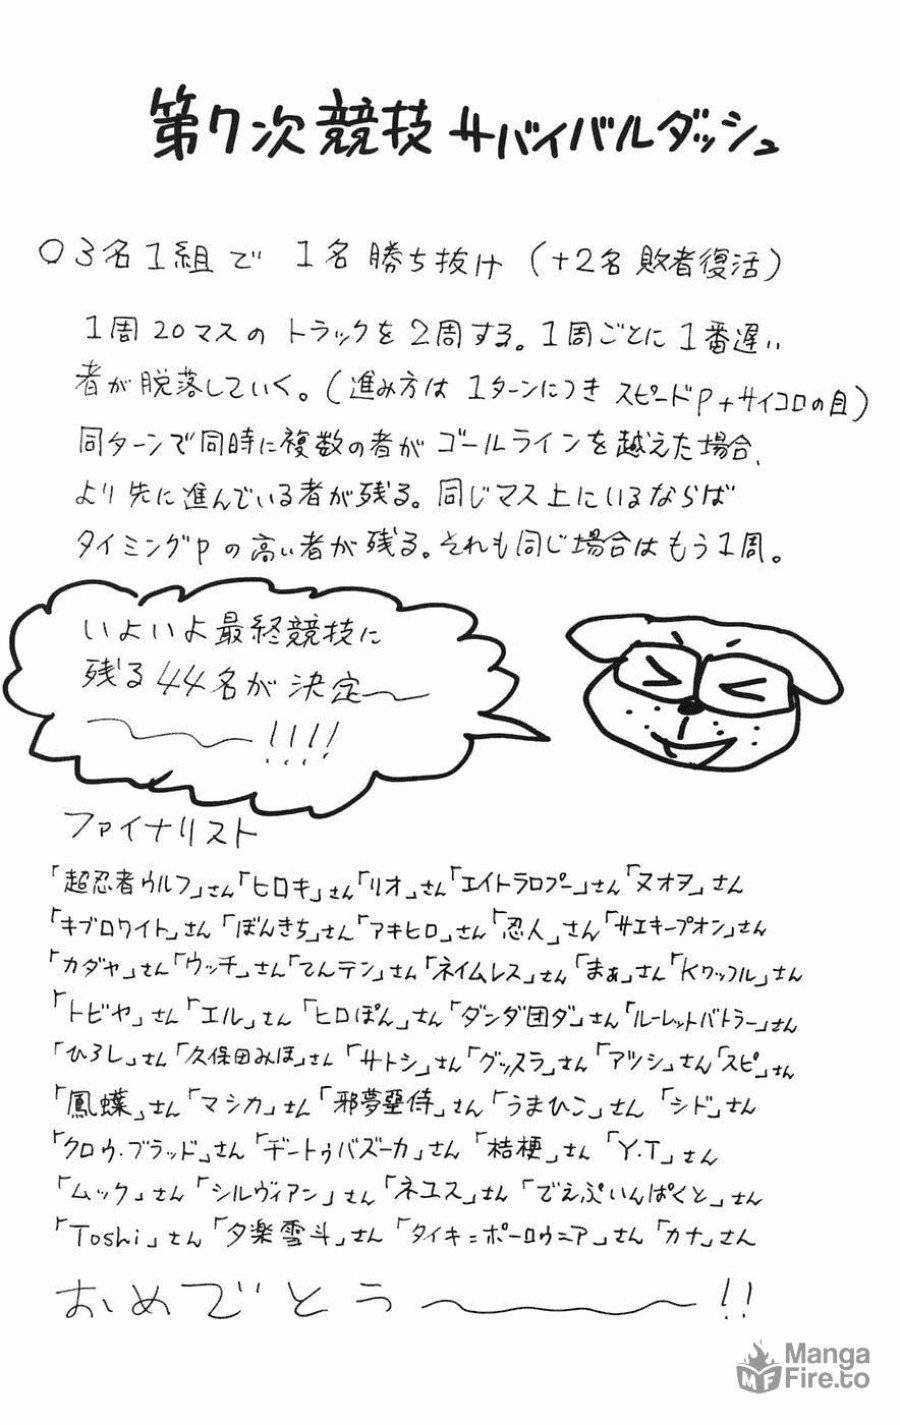 第7次競技サバイバルダッシュ
○3名1組で 1名勝ち抜け(+2名敗者復活)
1周20マスのトラックを2周する。1周ごとに1番遅い
者が脱落していく。(進み方は1ターンにつきスピードP+サイコロの目)
同ターンで同時に複数の者がゴールラインを越えた場合、
より先に進んでいる者が残る。同じマス上にいるならば
タイミングPの高い者が残る。それも同じ場合はもう1周。
いよいよ最終競技に
残る44名が決定〜
〜!!!!
ファイナリスト
「超忍者ウルフ」さん「ヒロキ」さん「リオ」さん「エイトラロプー」さん「ヌオヲ」さん
「キブロワイト」さん「ぼんきち」さん「アキヒロ」さん「忍人」さん「サエキープオン」さん
「カダヤ」さん「ウッチ」さん「てんテン」さん「ネイムレス」さん「まぁ」さん「Kワッフル」さん
「トビヤ」さん「エル」さん「ヒロぽん」さん「ダンダ団ダ」さん「ルーレットバトラー」さん
「ひろし」さん「久保田みほ」さん「サトシ」さん「グッスラ」さん「アツシ」さん「スピ」さん
「鳳蝶」さん「マシカ」さん「邪夢堊侍」さん「うまひこ」さん「シド」さん
「クロウ・ブラッド」さん「ヂートゥバズーカ」さん「桔梗」さん「Y.T」さん
「ムック」さん「シルヴィアン」さん「ネユス」さん「でえぷいんぱくと」さん
「Toshi」さん「夕楽雪斗」さん「タイキ=ポーロウニア」さん「カナ」さん
おめでとう〜!!
Manga
Fire.to
MF